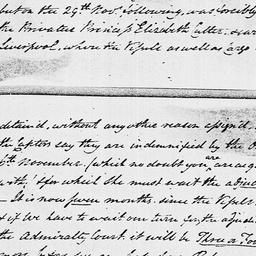 but on the 29th Nov. following, was forcibly
the Privateer Princess Elizabeth Cutter, & car
Liverpool, where the Vessel as well as Cargo
detain'd, without any other reason assign'd,
the Captors say they are indemnified by the O
6th November. (which no doubt you are acq
with,) & for which she must wait the adjud
It is now seven months, since the Vessel
& if we have to wait our turn for the adjud
the Admiralty Court, it will be Three or Fou
more